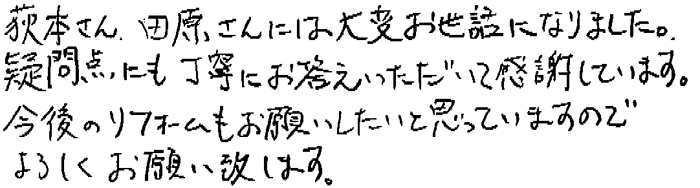 荻本さん、田原さんには大変お世話になりました。
疑問点にも丁寧にお答えいっただいて感謝しています。
今後のリフォームもお願いしたいと思っていますので
よろしくお願い致します。